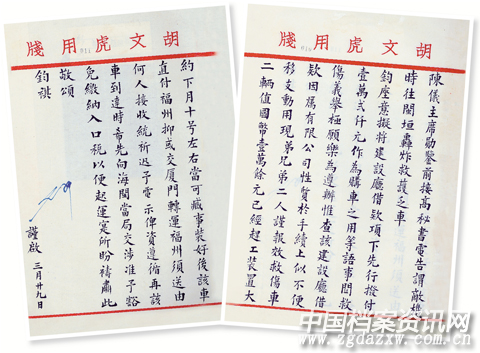 胡文虎用牋
陳儀主席勛鑒前接高秘書電告謂敵機
時往閩垣轟炸救護乏車
鈞座意擬將建設廳借欵項下先行撥付
壹萬弍仟元作為購車之用等語事関救
傷義舉極願樂為遵辦惟查該建設廳借
欵因属有限公司性質於手續上似不便
移支動用現弟兄弟二人謹報效救傷車
二輛值國幣壹萬餘元已經起工裝置大
胡文虎用牋
約下月十號左右當可蕆事裝好後該車
直付福州抑或交厦門轉運福州須送由
何人接收統祈迅予電示俾資遵循再該
車到達時希先向海関當局交涉准予豁
免繳納入口稅以便起運寔所盼禱肅此
敬頌
鈞祺
謹啟 三月廿九日
中国档案资讯网
www.zgdazxw.com.cn